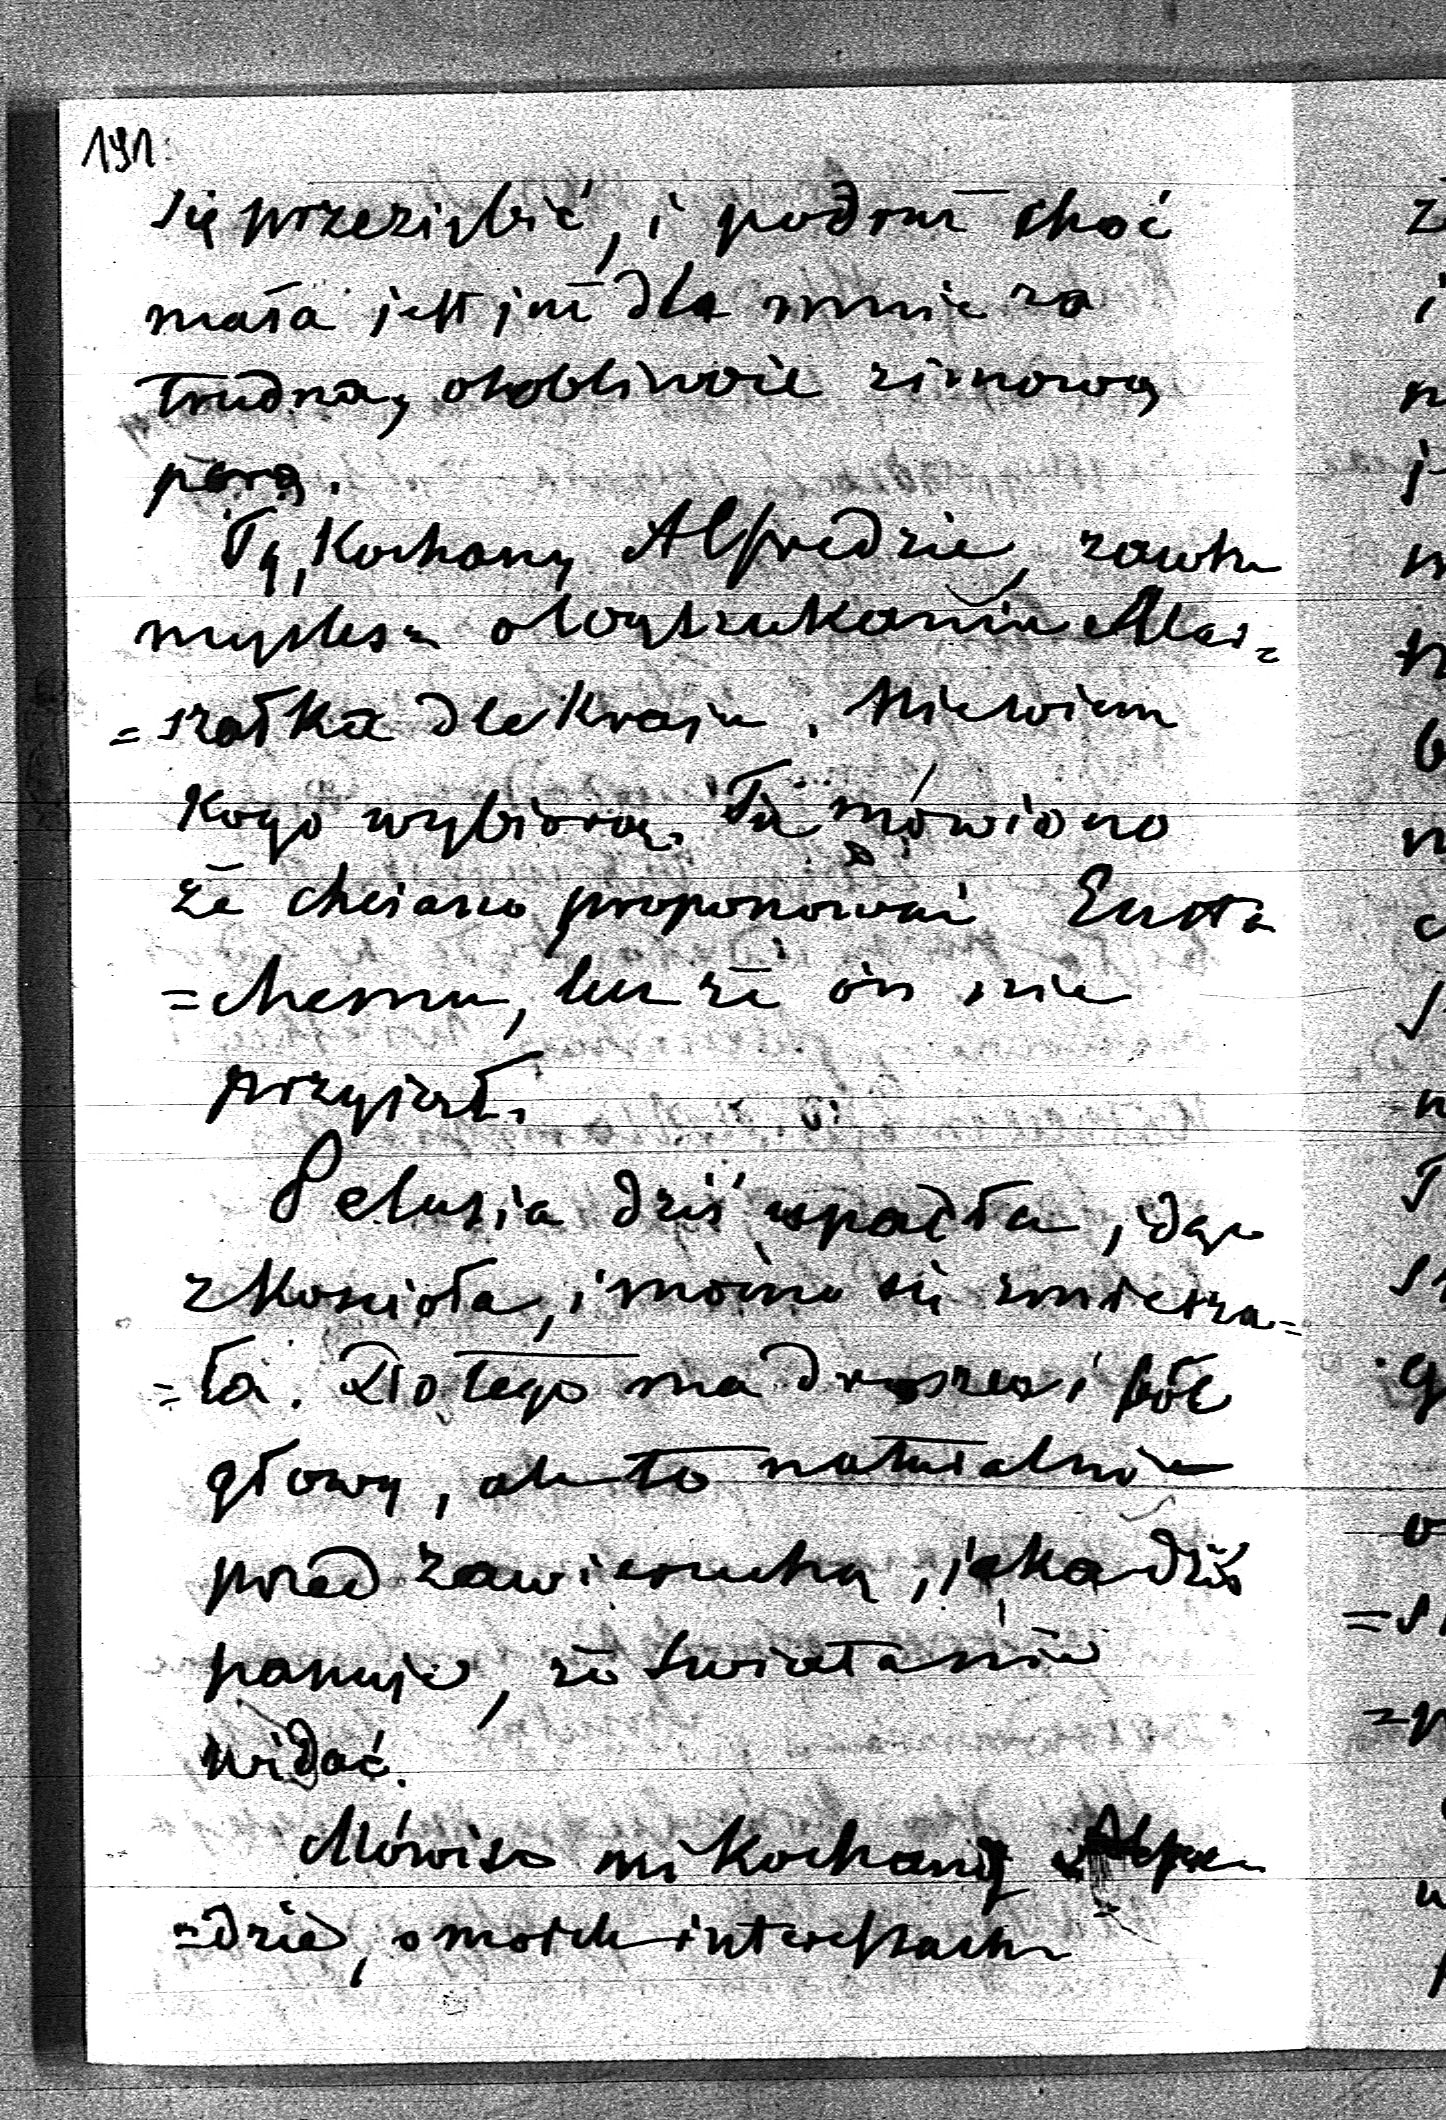 191.
się przeziębić, i podróż choć
mała jest już dla mnie za
trudna, osobliwie zimową
porą.
Ty, Kochany Alfredzie, zawsze
myślisz o wyszukaniu Mar=
=szałka dla Kraju. Niewiem
Kogo wybiorą. Tu mówiono
że chciano proponować Eusta
=chemu, lecz że on nie
przyjął.
Pelusia dziś upadła, idąc
z Kościoła, i mocno się zmiesza=
=ła. Do tego ma dreszcz i ból
głowy, ale to naturalnie
przed zawieruchą, jaka dziś
panuje, że świata nie
widać.
Mówisz mi Kochany Alfre
=dzie, o moich interessach